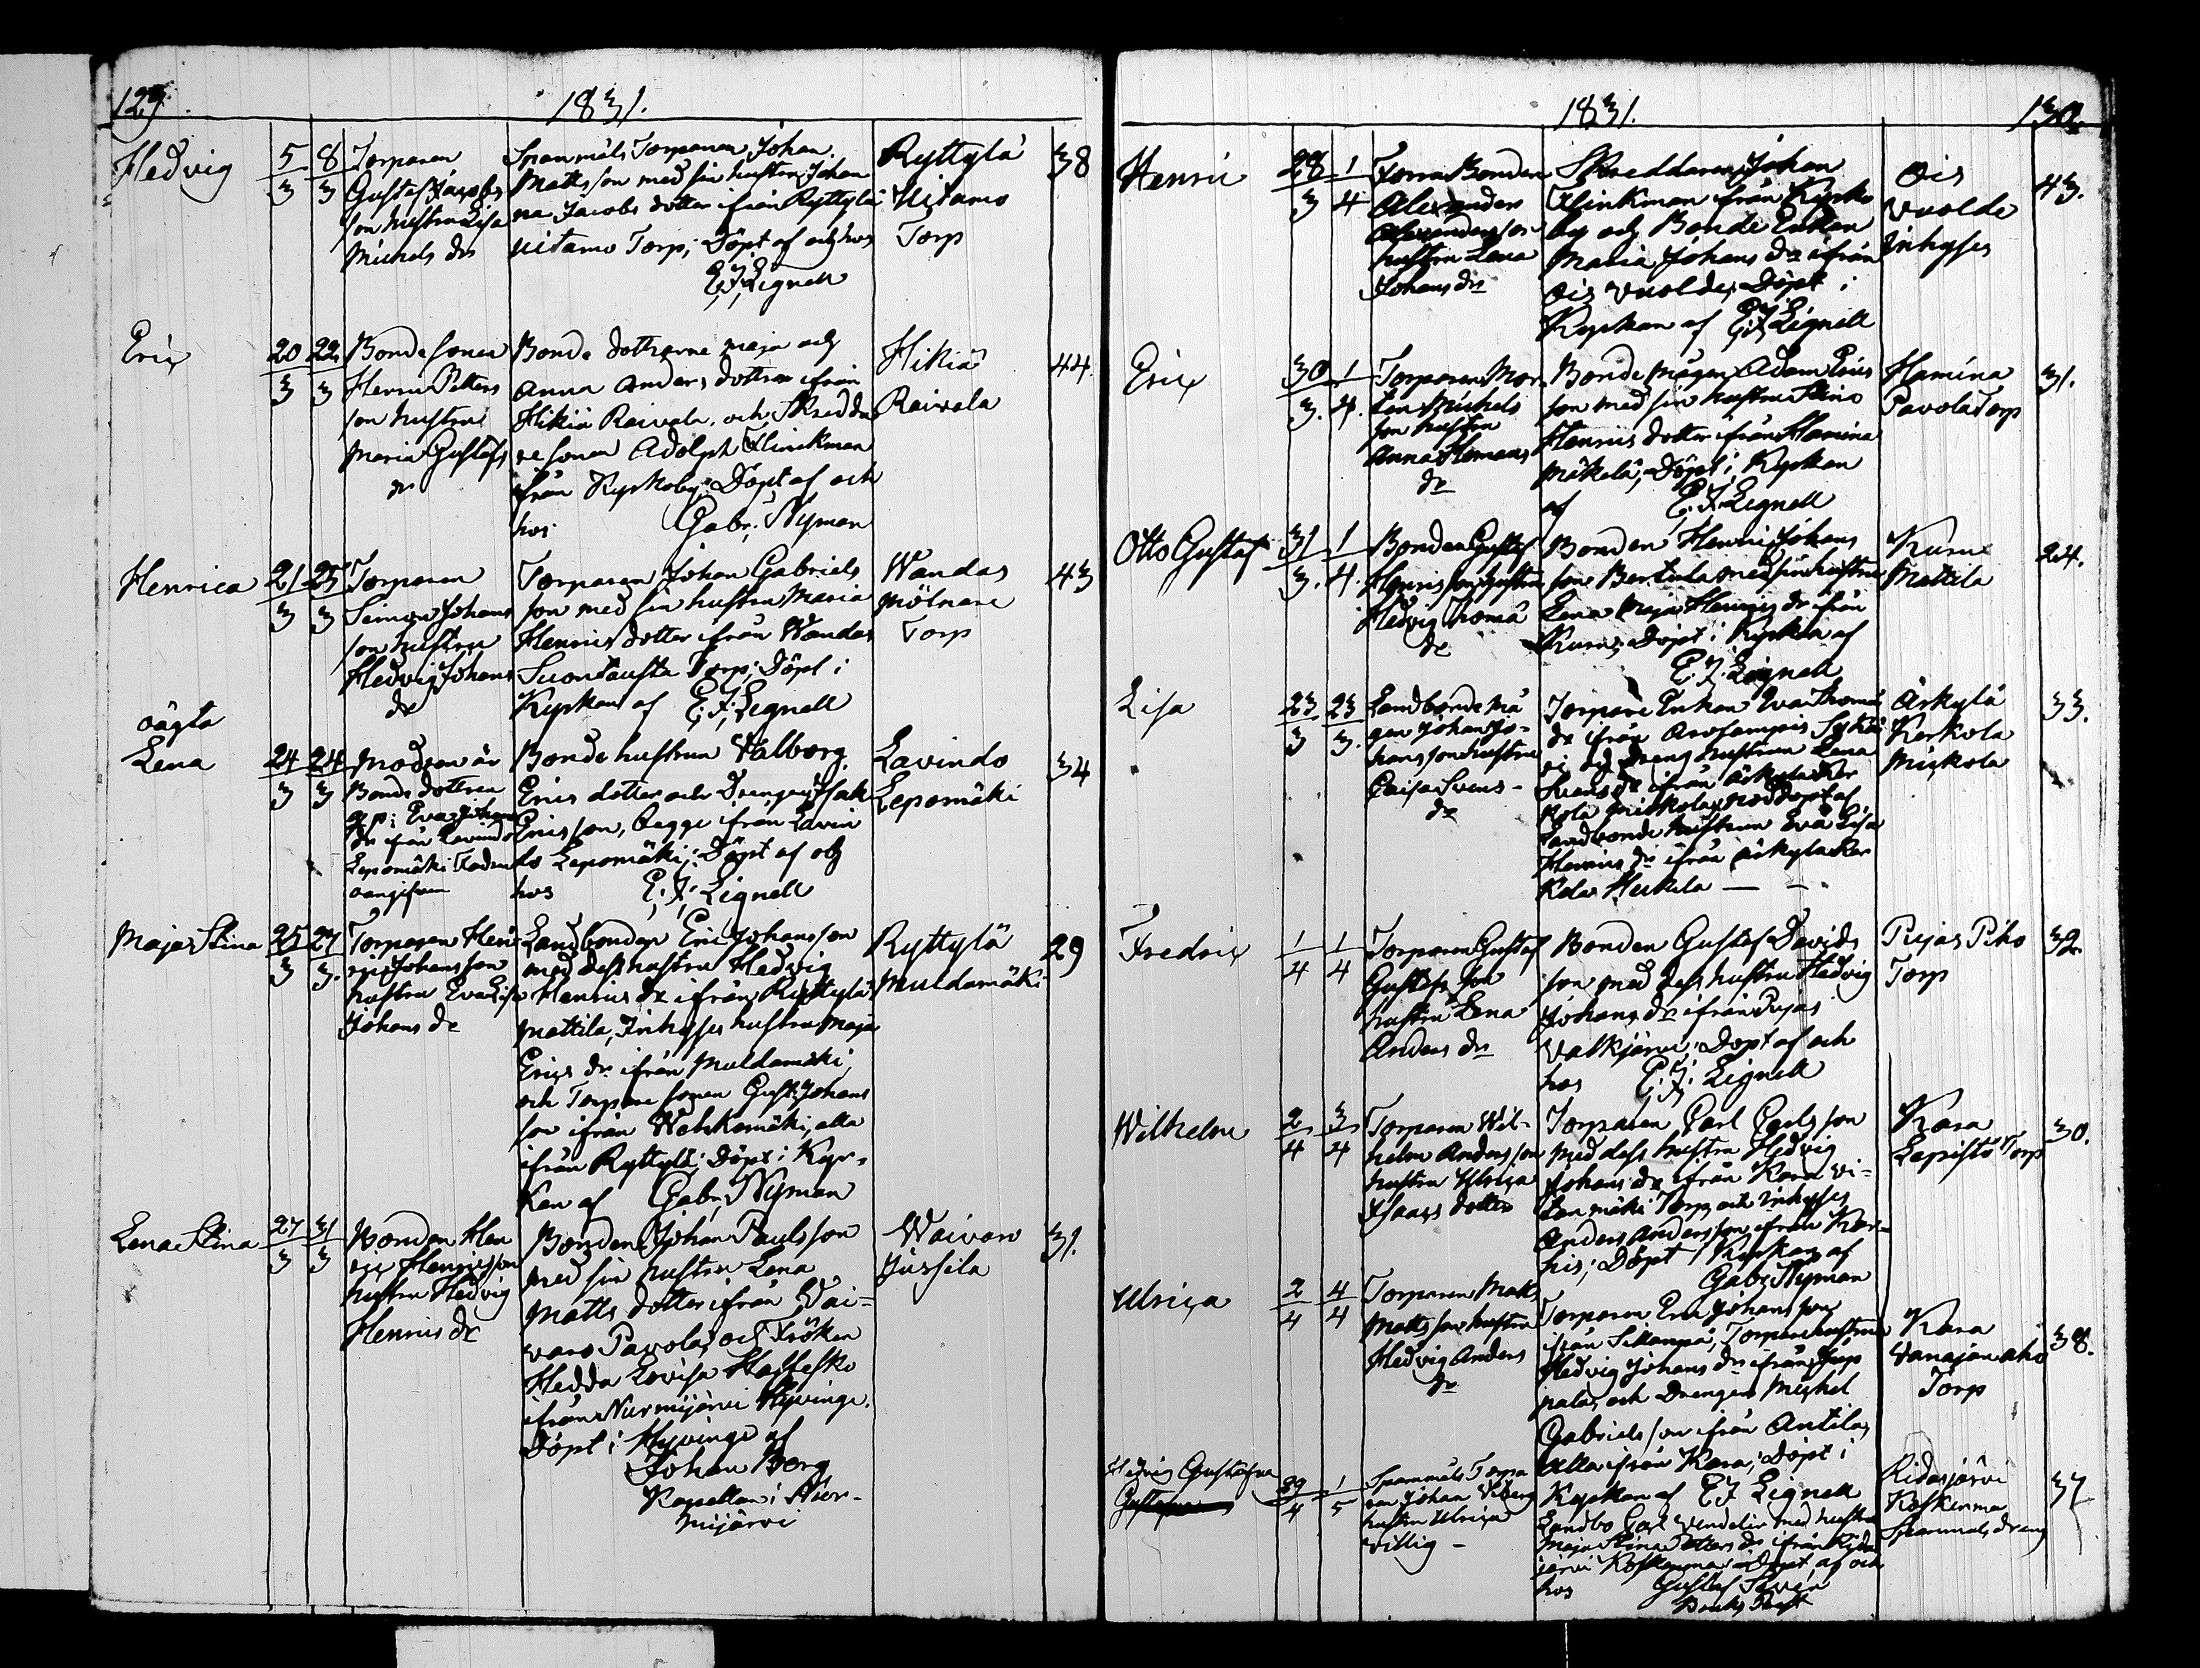 129.
1831.
Hedvig
5/3
8/3
Torparen
Gustaf Jacobs
son hustru Lisa
Michels dr
Spanmåls Torparen Johan
Mattsson med sin hustru Johan
na Jacobs dotter ifrån Ryttylä
Uitamo Torp; Döpt af och hos
E;J;Lignell
Ryttylä
Uitamo
Torp
38
Eric
20/3
22/3
Bondesonen
Henric Petters
son hustru
Maria Gustafs
dr
Bonde dottrarne Maja och
Anna Anders dottrar ifrån
Hikiä Raivala och Skredda
resonen Adolph Flinckman
ifrån Kyrkoby; Döpt af och
hos Gabr; Nyman
Hikiä
Raivala
44
Henrica
21/3
25/3
Torparen
Simon Johans
son hustru
Hedvig Johans
dr
Torparen Johan Gabriels
son med sin hustru Maria
Henrics dotter ifrån Wandas
Torp; Döpt i
Kyrkan af E;J;Lignell
Wandas
Mölnare
Torp
43
oägta
Lena
24/3
24/3
Modren är
Bonde dottren
Eva Johans
dr ifrån Lavindo
Lepomäki Fadren
oangifven
Bonde hustrun Valborg
Erics dotter och Drengen Isak
Ericsson, begge ifrån Lavin
do Lepomäki; Döpt af och
hos E;J; Lignell
Lavindo
Lepomäki
34
Maja Stina
25/3
27/3.
Torparen Hen
ric Johansson
hustru Eva Lisa
Johans dr
Landbonden Eric Johansson
med dess hustru Hedvig
Henrics dr ifrån Ryttylä
Mattila, Inhyses hustru Maja
Erics dr ifrån Muldamäki
och Torpare sonen Gust: Johans
son ifrån Wahkamäki, alla
ifrån Ryttylä; Döpt i Kyr-
kan af Gabr; Nyman
Ryttylä
Muldamäki
29
Lena Stina
27/3
31/3
Bonden Hen
ric Henricsson
hustru Hedvig
Henrics dr
Bonden Johan Paulsson
med sin hustru Lena
Matts dotter ifrån Wai-
varo Pavola, och Fröken
Hedda Lovisa
ifrån Nurmijärvi Hyvinge.
Döpt i Hyvinge af
Johan Berg
Kapellan i Nur-
mijärvi
Waivaro
Jussila
31.
1831.
130.
Henric
28/3
1/4
Forra Bonden
Alexander
Alexandersson
hustru Lena
Johans dr
Skreddaren Johan
Flinkman ifrån Kyrko
by och Bonde Enkan
Maria Johans dr ifrån
Ois Vuolde; Döpt i
Kyrkan af E;J;Lignell
Ois
Vuolde
Inhyses
43.
Eric
30/3.
1/4.
Torparen Mor
ten Michels
son hustru
Anna Hemans
dr
Bonde mågen Adam Erics
son med sin hustru Stina
Henrics dotter ifrån Hamina
Mäkelä; Döpt i Kyrkan
af E.J.Lignell
Hamina
Pavola Torp
31.
Otto Gustaf
31/3.
1/4.
Bonden Gustaf
Henricsson hustru
Hedvig Thoma
dr
Bonden Henric Johans
son Bertula med sin hustru
Lena Maja Henrics dr ifrån
Kuru; Döpt i Kyrkan af
E.J.Lignell
Kuru
Mattila
24.
Lisa
23/3
23/3.
Landbonde må
gen Johan Jo-
hansson hustru
Caisa Svens-
dr
Torpare Enkan Eva Thoma
dr ifrån
och Dreng hustrun Lena
Svens dr ifrån Äskylä Ker
kola Mickola, nöddöpt af
Landbonde hustrun Eva Lisa
Henrics dr ifrån Äskylä Ker
kola Heikela — —
Äskylä
Kerkola
Mickola
33.
Fredric
1/4
1/4
Torparen Gustaf
Gustafs son
hustru Lena
Anders dr
Bonden Gustaf Davids
son med dess hustru Hedvig
Johans dr ifrån Pujas
Valkjärvi; Döpt af och
hos E.J. Lignell
Pujas Piho
Torp
32.
Wilhelm
2/4
3/4
Torparen Wil-
helm Andersson
hustru Ulrica
Isaacs dotter
Torparen Carl Carlsson
med dess hustru Hedvig
Johans dr ifrån Kara Vi-
tanmäki Torp och Inhyses
Anders Andersson ifrån Kar-
his; Döpt i Kyrkan af
Gabr Nyman
Kara
Lepistö Torp
30.
Ulrica
2/4
4/4
Torparen Matts
Mattsson hustru
Hedvig Anders
dr
Torparen Eric Johansson
ifrån Sillanpä, Torpare hustrun
Hedvig Johans dr ifrån Jup
pala, och Drengen Michel
Gabrielsson ifrån Antila,
Alla ifrån Kara; Döpt i
Kyrkan af E.J. Lignell
Kara
Vanajan aho
Torp
38.
Hedvig Gustafva
29/4
1/5
Spanmåls Torpa
ren Johan
hustru Ulrica
Villig -
Landbo Carl Vendelin med hustru
Maja Stina Petters dr ifrån Rida
järvi Koskenma; Döpt af och
hos Gustaf
Bruks Pred
Ridasjärvi
Koskenma
Spanmåls dreng
37